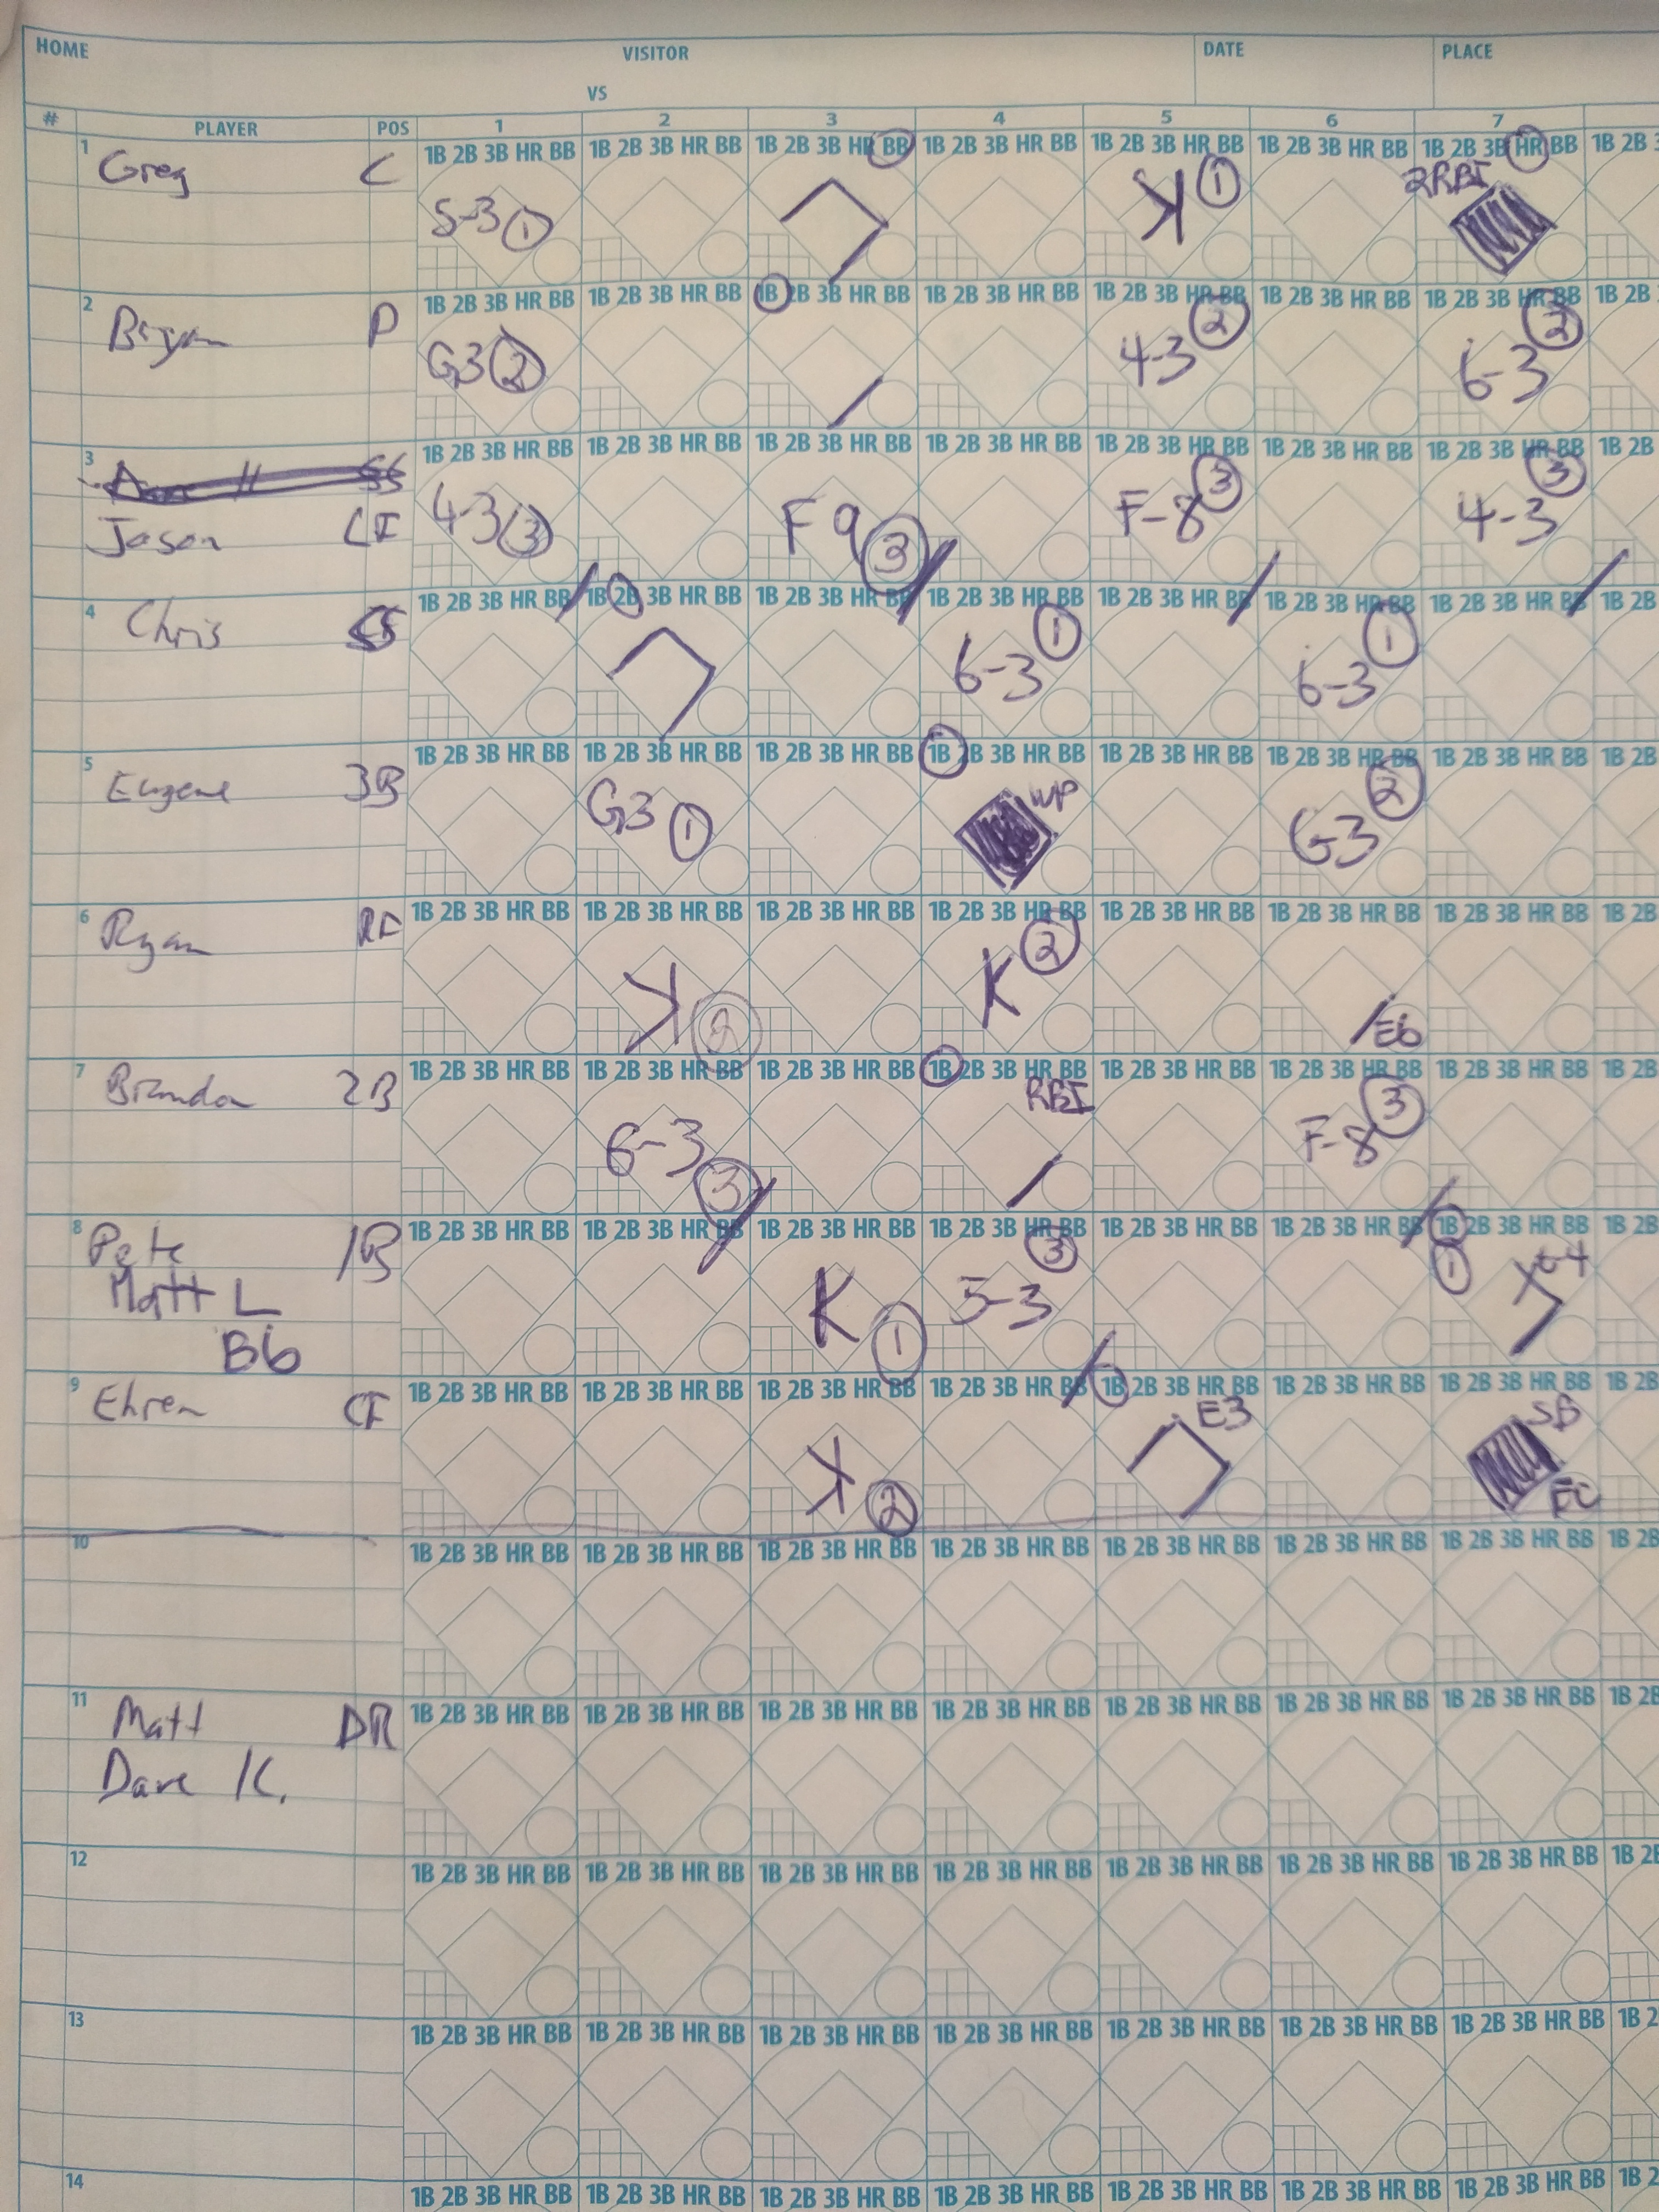 HOME VISITOR DATE PLACE
VS
# PLAYER POS 1 2 3 4 5 6 7
1 1B 2B 3B HR BB 1B 2B 3B HR BB 1B 2B 3B HR BB 1B 2B 3B HR BB 1B 2B 3B HR BB 1B 2B 3B HR BB 1B 2B 3B HR BB 1B 2B
Greg C 5-3 1 K 1 2RBI
2 1B 2B 3B HR BB 1B 2B 3B HR BB 1B 2B 3B HR BB 1B 2B 3B HR BB 1B 2B 3B HR BB 1B 2B 3B HR BB 1B 2B 3B HR BB 1B 2B
Bryan P G3 2 4-3 2 6-3 2
3 1B 2B 3B HR BB 1B 2B 3B HR BB 1B 2B 3B HR BB 1B 2B 3B HR BB 1B 2B 3B HR BB 1B 2B 3B HR BB 1B 2B 3B HR BB 1B 2B
Jason LF 4-3 3 F9 3 F-8 3 4-3 3
4 1B 2B 3B HR BB 1B 2B 3B HR BB 1B 2B 3B HR BB 1B 2B 3B HR BB 1B 2B 3B HR BB 1B 2B 3B HR BB 1B 2B 3B HR BB 1B 2B
Chris SS 6-3 1 6-3 1
5 1B 2B 3B HR BB 1B 2B 3B HR BB 1B 2B 3B HR BB 1B 2B 3B HR BB 1B 2B 3B HR BB 1B 2B 3B HR BB 1B 2B 3B HR BB 1B 2B
Eugene 3B G3 1 WP G3 2
6 1B 2B 3B HR BB 1B 2B 3B HR BB 1B 2B 3B HR BB 1B 2B 3B HR BB 1B 2B 3B HR BB 1B 2B 3B HR BB 1B 2B 3B HR BB 1B 2B
Ryan RF K 2 K 2 E6
7 1B 2B 3B HR BB 1B 2B 3B HR BB 1B 2B 3B HR BB 1B 2B 3B HR BB 1B 2B 3B HR BB 1B 2B 3B HR BB 1B 2B 3B HR BB 1B 2B
Brandon 2B 6-3 3 RBI F-8 3
8 1B 2B 3B HR BB 1B 2B 3B HR BB 1B 2B 3B HR BB 1B 2B 3B HR BB 1B 2B 3B HR BB 1B 2B 3B HR BB 1B 2B 3B HR BB 1B 2B
Pete 1B K 1 5-3 3 1 6-4
Matt L
B6
9 1B 2B 3B HR BB 1B 2B 3B HR BB 1B 2B 3B HR BB 1B 2B 3B HR BB 1B 2B 3B HR BB 1B 2B 3B HR BB 1B 2B 3B HR BB 1B 2B
Ehren CF K 2 E3 SB
10 1B 2B 3B HR BB 1B 2B 3B HR BB 1B 2B 3B HR BB 1B 2B 3B HR BB 1B 2B 3B HR BB 1B 2B 3B HR BB 1B 2B 3B HR BB 1B 2B
11 1B 2B 3B HR BB 1B 2B 3B HR BB 1B 2B 3B HR BB 1B 2B 3B HR BB 1B 2B 3B HR BB 1B 2B 3B HR BB 1B 2B 3B HR BB 1B 2B
Matt DR
Dave K.
12 1B 2B 3B HR BB 1B 2B 3B HR BB 1B 2B 3B HR BB 1B 2B 3B HR BB 1B 2B 3B HR BB 1B 2B 3B HR BB 1B 2B 3B HR BB 1B 2B
13 1B 2B 3B HR BB 1B 2B 3B HR BB 1B 2B 3B HR BB 1B 2B 3B HR BB 1B 2B 3B HR BB 1B 2B 3B HR BB 1B 2B 3B HR BB 1B 2
14 1B 2B 3B HR BB 1B 2B 3B HR BB 1B 2B 3B HR BB 1B 2B 3B HR BB 1B 2B 3B HR BB 1B 2B 3B HR BB 1B 2B 3B HR BB 1B 2